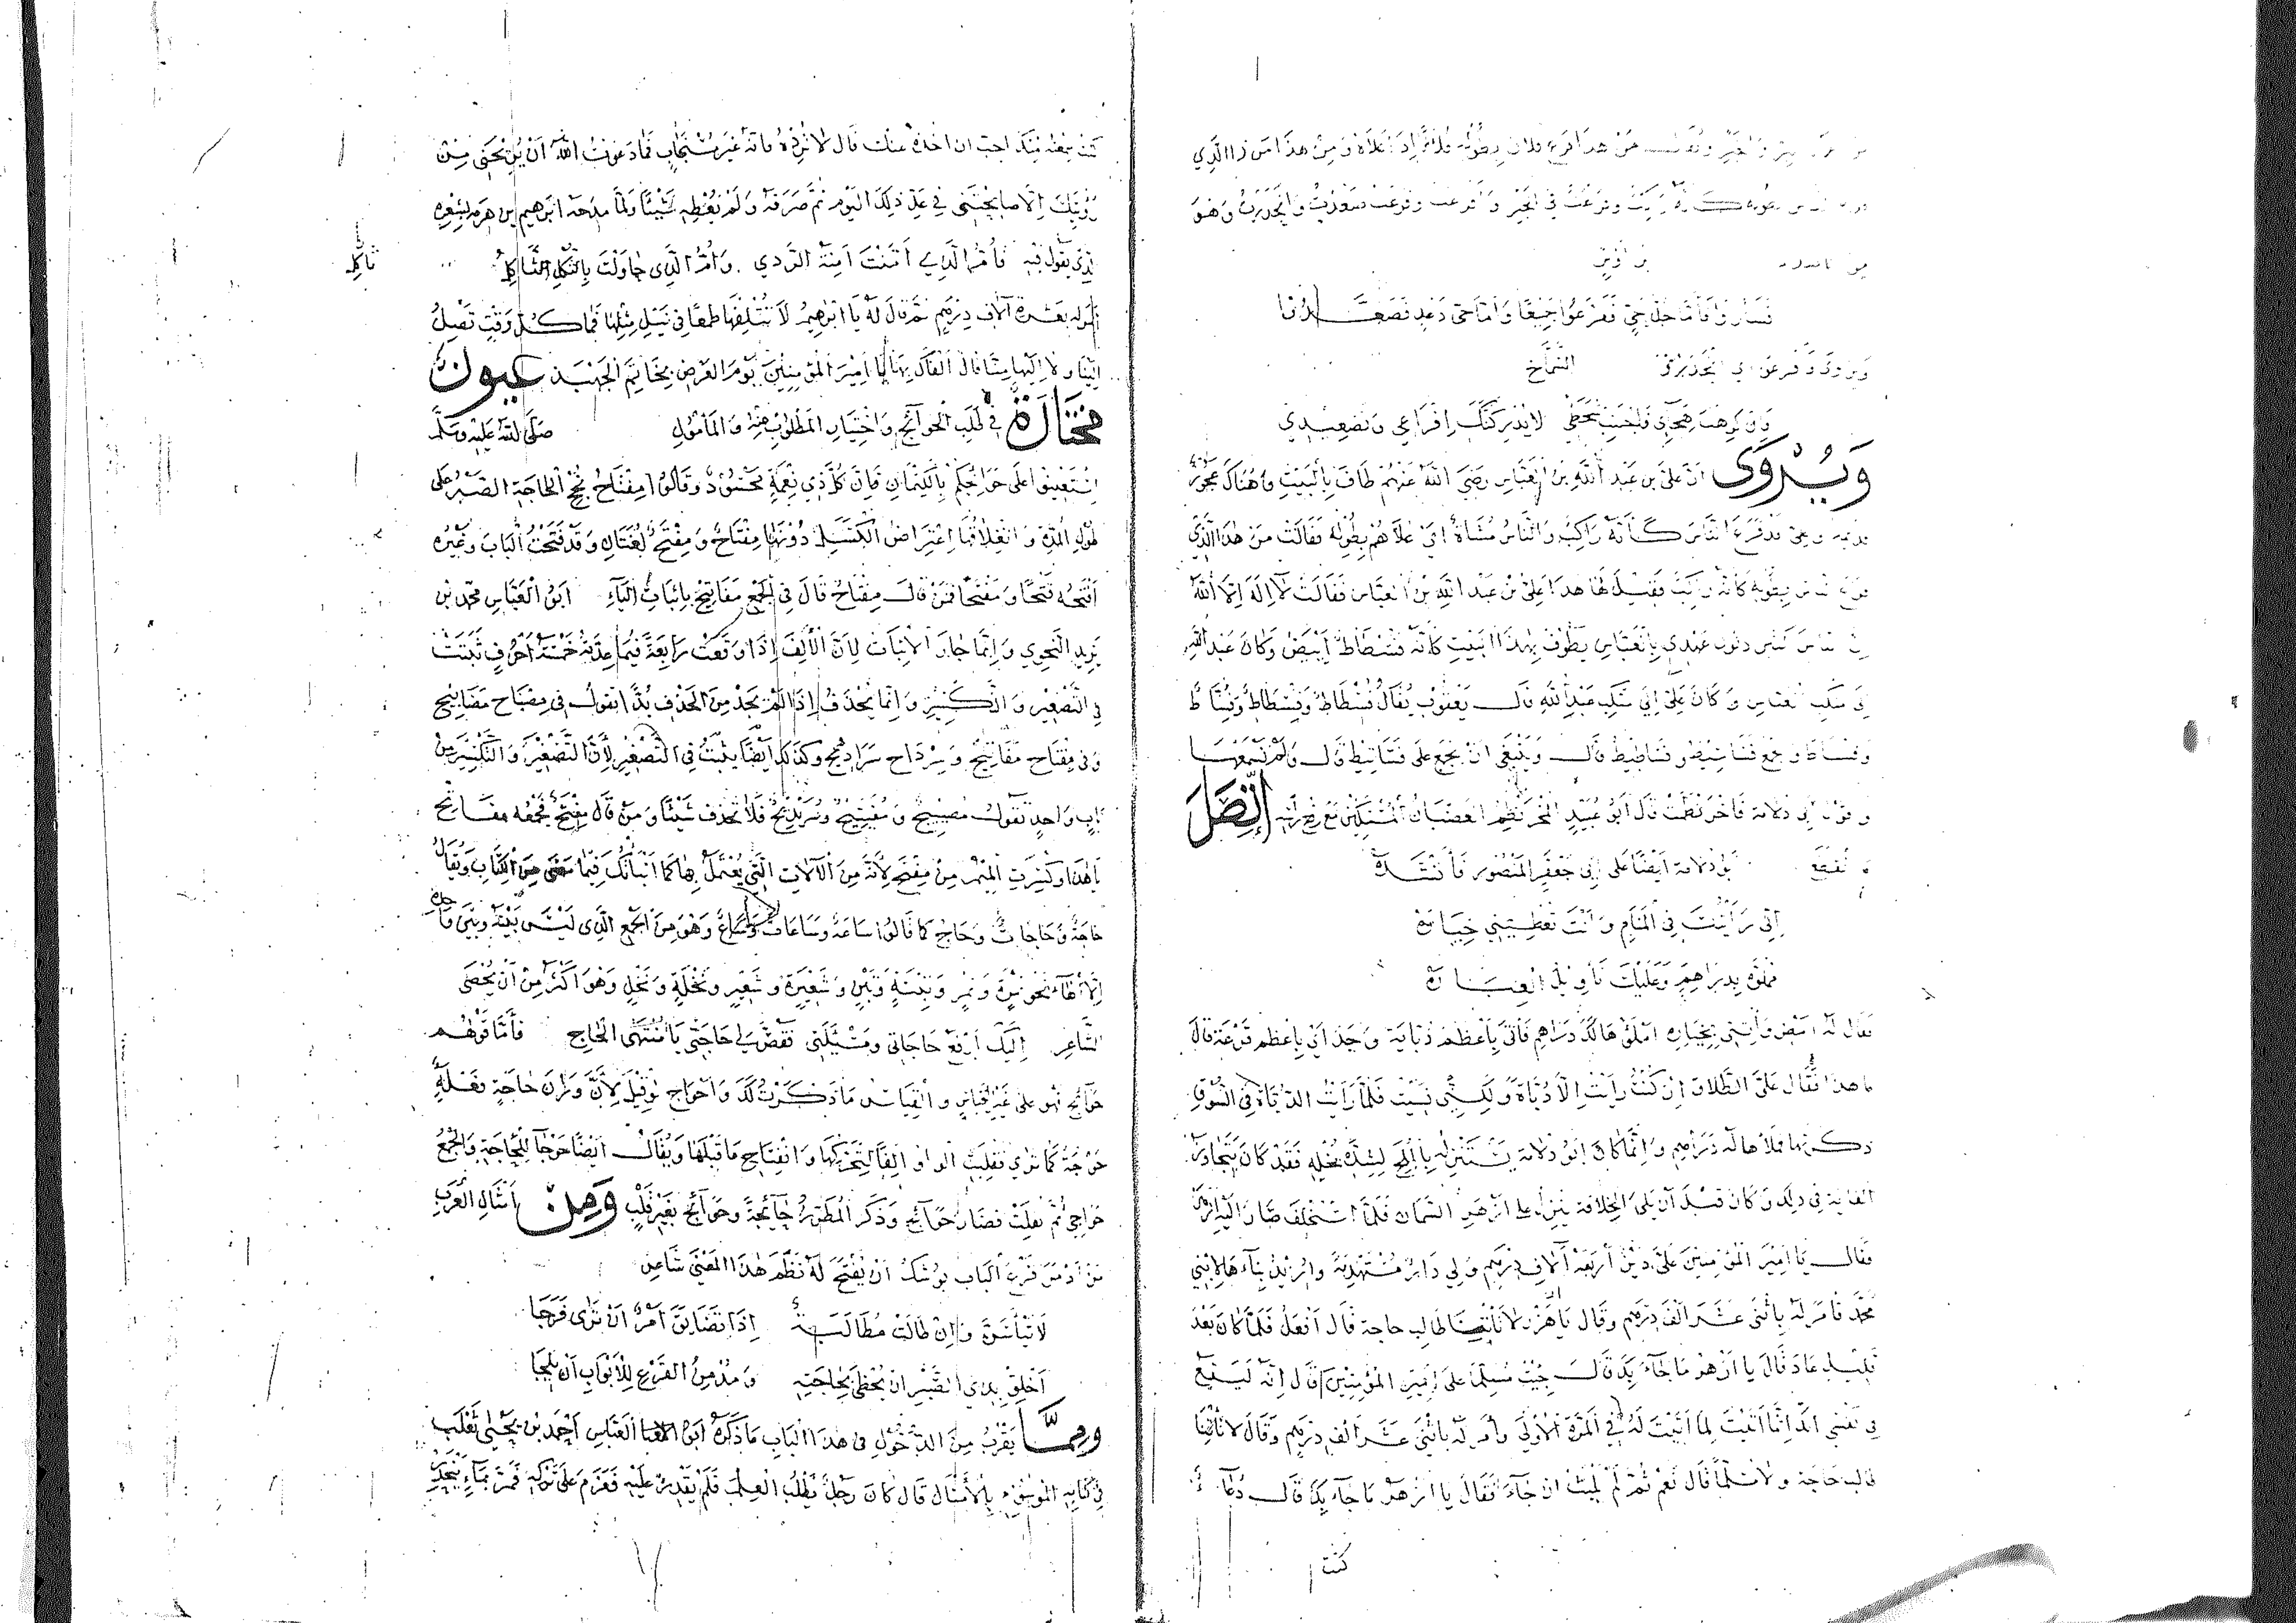 من هذا فرع فلان بطوله فلانا إذا علاه ومن هذا امن زا الذي
في الخبر وأفرعت وفرعت صعدت وانحدرت وهو
بن أوس
فساروا فأما حل حي ففرعوا جميعا وأما حي دعد فصعدوا
ويروى فأفرعوا أي انحدروا وقال الشماخ
وإن كرهت هجائي فاجتنب سخطي لا يدركنك إفراعي وتصعيدي
ويروى أن علي بن عبد الله بن العباس رضي الله عنهم طاف بالبيت وهناك عجوز
قديمة وعلي قد فرع الناس كأنه راكب والناس مشاة أي علاهم بطوله فقالت من هذا الذي
فرع الناس بطوله كأنه راكب فقيل لها هذا علي بن عبد الله بن العباس فقالت لا إله إلا الله
إن الناس ليرذلون عهدي بالعباس يطوف بهذا البيت كأنه فسطاط أبيض وكان عبد الله
إلى منكب العباس وكان علي إلى منكب عبد الله قال يعقوب يقال فسطاط وفسطاط وفستاط
وفساط وجمع فساطيط وفساطيط قال وينبغي أن يجمع على فساتيط قال ولم نسمعها
وقول أبي دلامة فاخرنطمت قال أبو عبيد المخرنطم الغضبان المتكبر مع رفع رأسه اتصل
ما انقطع أبو دلامة أيضا على أبي جعفر المنصور فأنشده
إني رأيتك في المنام وأنت تعطيني خياره
مملوة بدراهم وعليك تأويل العباره
فقال له امض وأتني بخياره املؤها لك دراهم فأتى بأعظم دباية وجد أي بأعظم قرعة قال
ما هذا فقال علي الطلاق إن كنت رأيت إلا دباة ولكني نسيت فلما رأيت الدباة في السوق
ذكرتها فملأها له دراهم وإنما كان أبو دلامة يستنزله بالملح لشدة بخله فقد كان يتجاوز
الغاية في ذلك وكان قبل أن يلي الخلافة ينزل على أزهر السمان فلما استخلف صار إليه أزهر
فقال يا أمير المؤمنين علي دين أربعة آلاف درهم ولي دار مستهدمة وأريد بناءها لابني
محمد فأمر له باثني عشر ألف درهم وقال يا أزهر لا تأتينا طالب حاجة قال أفعل فلما كان بعد
قليل عاد قال يا أزهر ما جاء بك قال جيت مسلما على أمير المؤمنين قال إنه ليقع
في نفسي أنك إنما أتيت لما أتيت له في المرة الأولى وأمر له باثني عشر ألف درهم وقال لا تأتنا
طالب حاجة ولا مسلما قال نعم ثم لم يلبث أن جاء فقال يا أزهر ما جاء بك قال دعاء
كنت
كنت سمعته منك أحببت أن آخذه عنك قال لا ترده فإنه غير مستجاب فما دعوت الله أن يريحني من
رؤيتك إلا صابحتني في غد ذلك اليوم ثم صرفه ولم يعطه شيئا ولما مدحه ابراهيم بن هرمة بشعره
الذي يقول فيه فأم الذي أمنت آمنة الردي وأم الذي حاولت بالثكل الثاكل
ثاكل
أمر له بعشرة آلاف درهم ثم قال له يا ابراهيم لا تتلفها طمعا في نيل مثلها فما كل وقت تصل
إلينا ولا إليها منا فقال ألقاك بها يا أمير المؤمنين يوم العرض بخاتم الجهبذ عيون
مختارة في طلب الحوائج واختيار المطلوب منه والمأمول صلى الله عليه وسلم
استعينوا على حوائجكم بالكتمان فإن كل ذي نعمة محسود وقالوا مفتاح نجح الحاجة الصبر على
طول المدة وانغلاقها اعتراض الكسل دونها مفتاح ومفتح لغتان وقد فتحت الباب وغيره
أفتحه فتحا ومفتحا فمن قال مفتاح قال في الجمع مفاتيح بإثبات الياء أبو العباس محمد بن
يزيد النحوي وإنما جاز الإثبات لأن الألف إذا وقعت رابعة فيما عدته خمسة أحرف ثبتت
في التصغير والتكسير وإنما يحذف إذا لم يجد من الحذف بدا تقول في مصباح مصابيح
وفي مفتاح مفاتيح وسرداح سراديح وكذلك أيضا يثبت في التصغير لأن التصغير والتكسير من
باب واحد تقول مصيبيح ومفيتيح وسريديح فلا تحذف شيئا ومن قال مفتح فجمعه مفاتح
بهذا وكسرت الميم من مفتح لأنه من الآلات التي يعتمل بها كما أنبأتك فيما مضى من الكتاب ويقال
حاجة وحاجات وحاج كما قالوا ساعة وساعات وساع وهو من الجمع الذي ليس بينه وبين واحده
إلا الهاء نحو تمرة وتمر وتبنة وتبن وشعيرة وشعير ونخلة ونخل وهو أكثر من أن يحصى
الشاعر إليك أرفع حاجاتي ومسئلتي فقض لي حاجتي يا منتهى الحاج فأما قولهم
حوائج فهو على غير قياس والقياس ما ذكرت لك وأحواج لو قيل لأن وزن حاجة فعلة
حوجة كما ترى فقلبت الواو ألفا لتحركها وانفتاح ما قبلها ويقال أيضا حوجاء للحاجة والجمع
حواجي ثم قلبت فصار حوائج وذكر المطرز حائجة وحوائج بغير قلب ومن أمثال العرب
من أدمن قرع الباب يوشك أن يفتح له نظم هذا المعنى شاعر
لا تيأسن وإن طالت مطالبة إذا تضايق أمر أن ترى فرجا
أخلق بذي الصبر أن يحظى بحاجته ومدمن القرع للأبواب أن يلجا
ومما يقرب من الدخول في هذا الباب ما ذكره أبو العباس أحمد بن يحيى ثعلب
في كتابه الموشى بالأمثال قال كان رجل يطلب العلم فلم يقدر عليه فعزم على تركه فمر بماء ينحدر